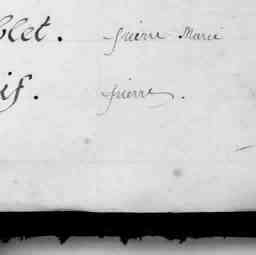 blet. pierre Marie
if. pierre.